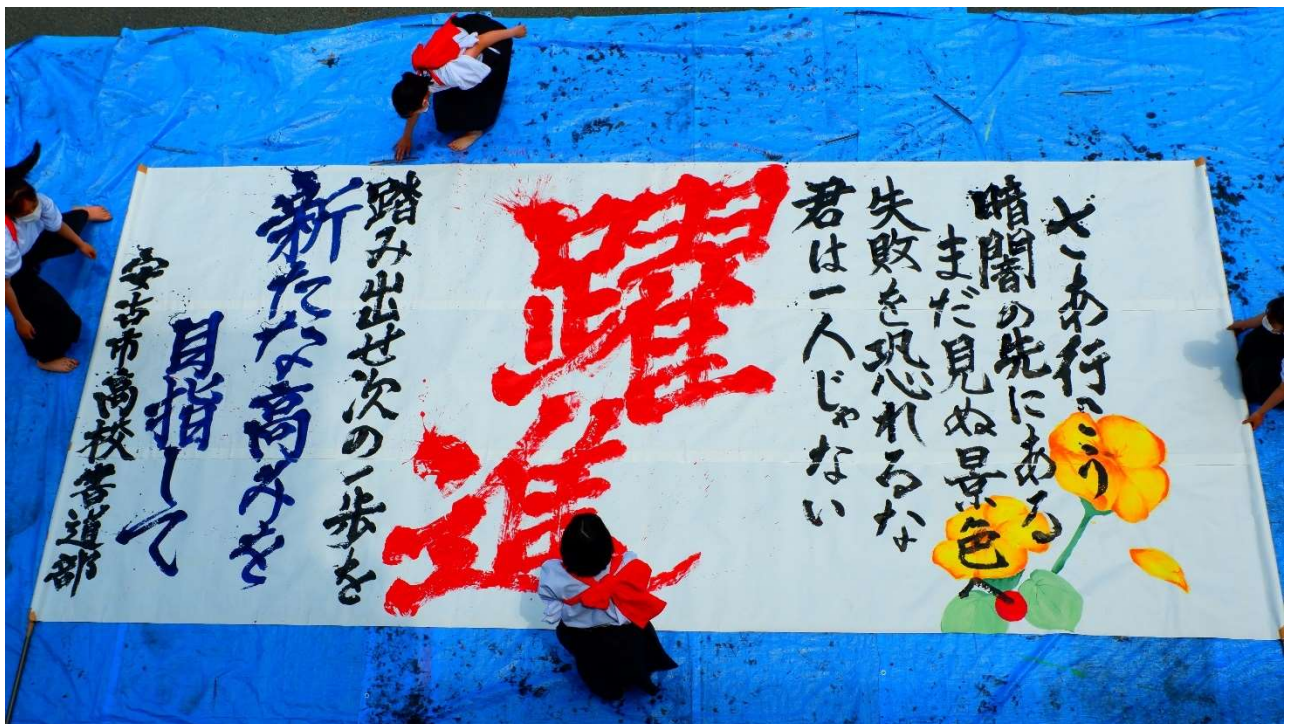 さあ行こう
暗闇の先にある
まだ見ぬ景色へ
失敗を恐れるな
君は一人じゃない
躍進
踏み出せ次の一歩を
新たな高みを
目指して
安古市高校書道部